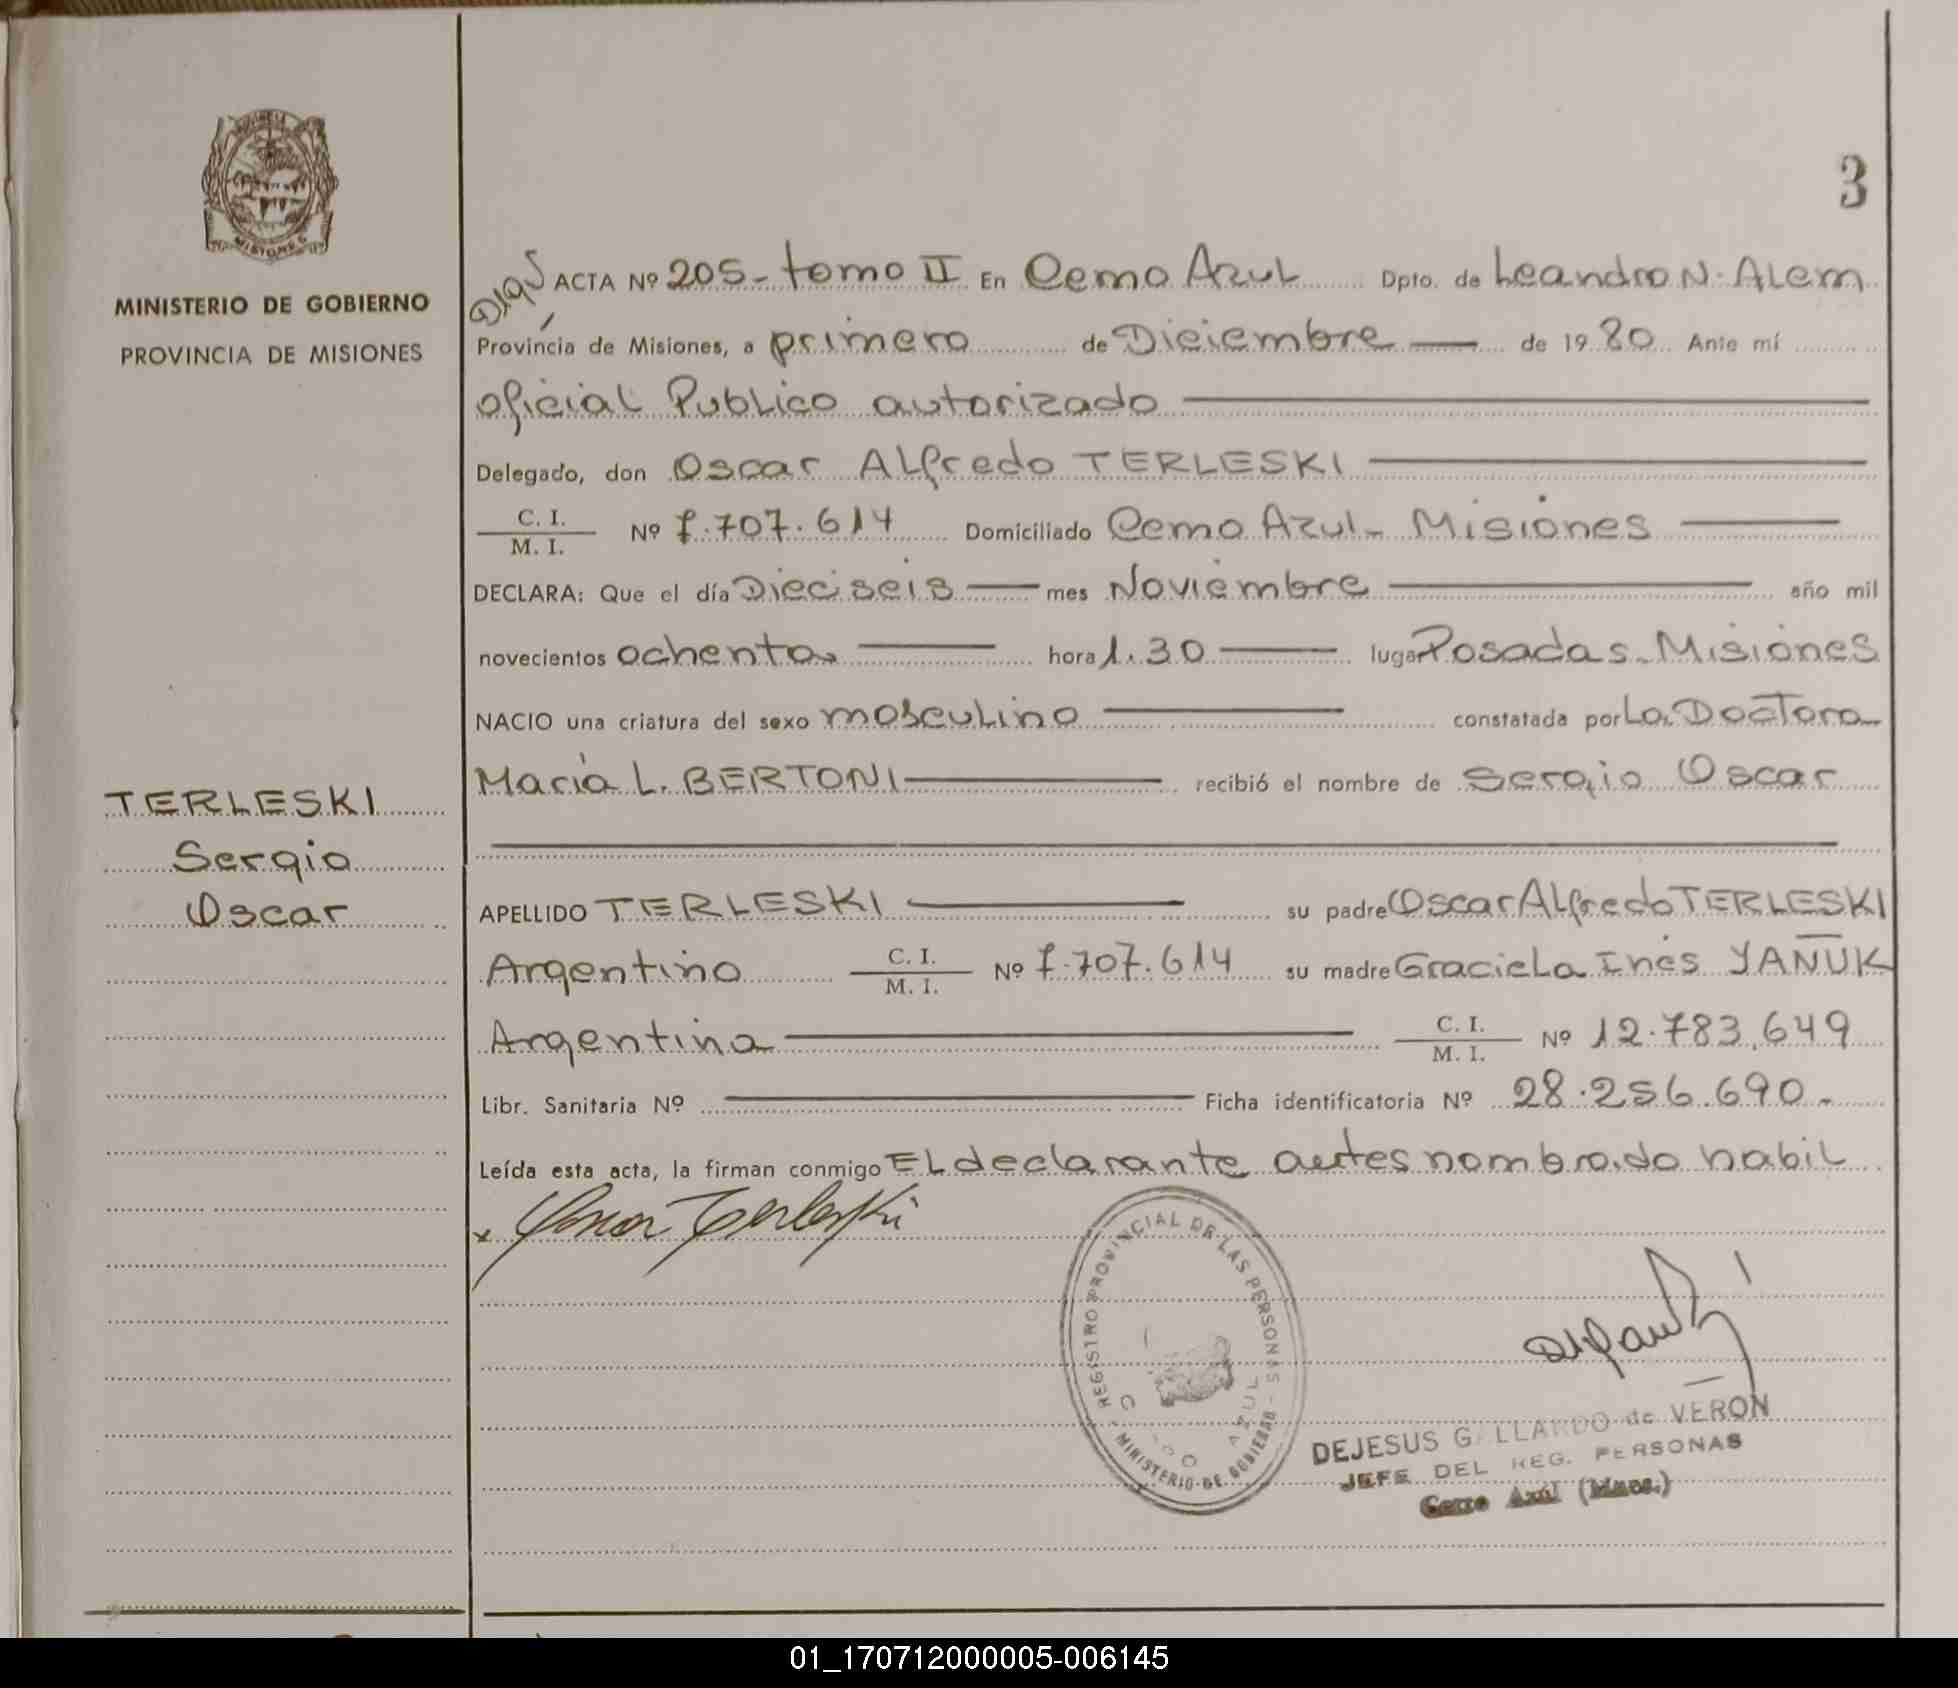 MISIONES
MINISTERIO DE GOBIERNO
PROVINCIA DE MISIONES
TERLESKI
Sergio
Oscar
3
ACTA Nº 205 - tomo II En Cerro Azul Dpto. de Leandro N. Alem
Provincia de Misiones, a primero de Diciembre de 1980 Ante mí
oficial Publico autorizado
Delegado, don Oscar Alfredo TERLESKI
C. I. / M. I. Nº 7.707.614 Domiciliado Cerro Azul - Misiones
DECLARA: Que el día Dieciseis mes Noviembre año mil
novecientos ochenta hora 1.30 lugar Posadas - Misiones
NACIO una criatura del sexo masculino constatada por La Doctora
María L. BERTONI recibió el nombre de Sergio Oscar
APELLIDO TERLESKI su padre Oscar Alfredo TERLESKI
Argentino C. I. / M. I. Nº 7.707.614 su madre Graciela Inés YAÑUK
Argentina C. I. / M. I. Nº 12.783.649
Libr. Sanitaria Nº Ficha identificatoria Nº 28.256.690.-
Leída esta acta, la firman conmigo EL declarante antes nombrado habil
x Oscar Terleski
REGISTRO PROVINCIAL DE LAS PERSONAS - MINISTERIO DE GOBIERNO
AZUL
DEJESUS GALLARDO de VERON
JEFE DEL REG. PERSONAS
Cerro Azul (Mnes.)
01_170712000005-006145